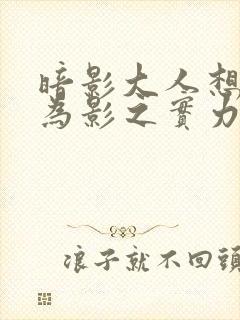 暗影大人想
為影之實力
浪子就不回頭